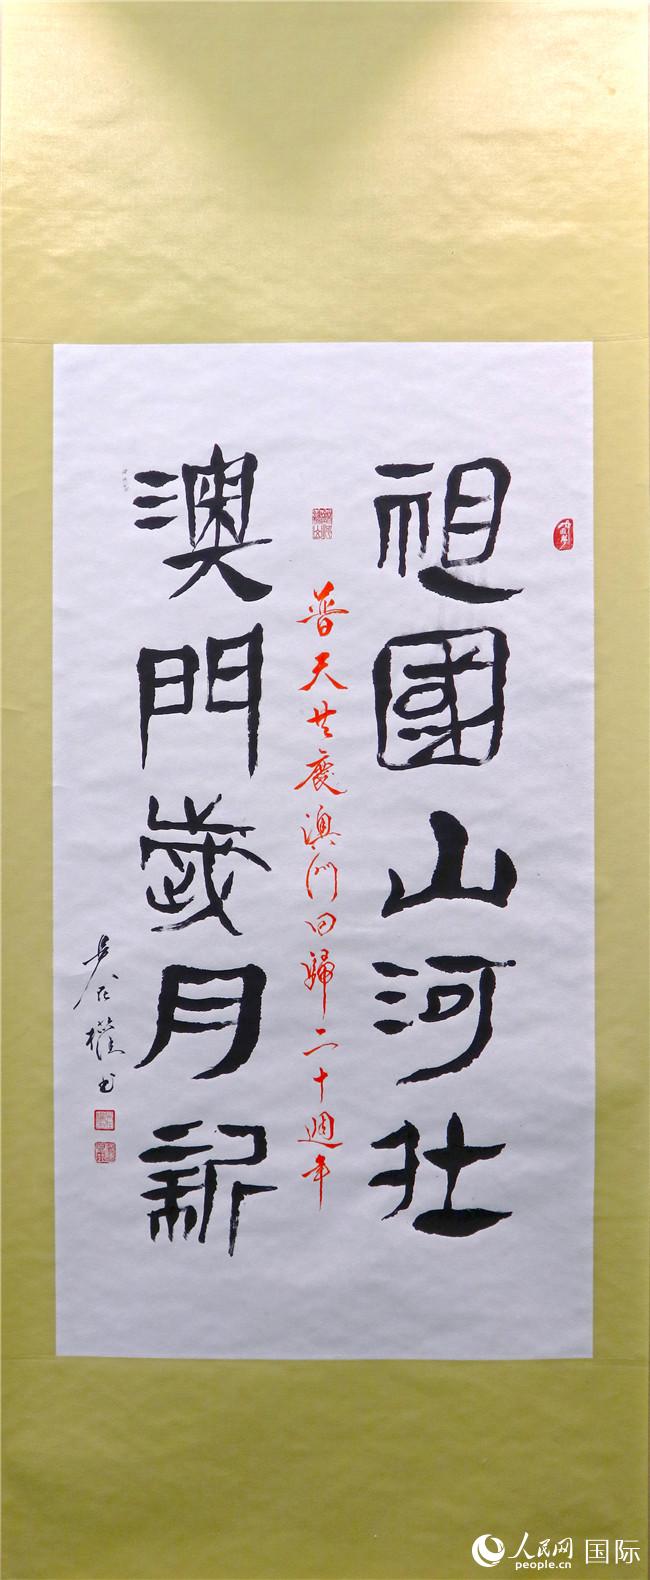 祖國山河壯
普天共慶澳門回歸二十週年
澳門歲月新
權書
人民网 国际
people.cn